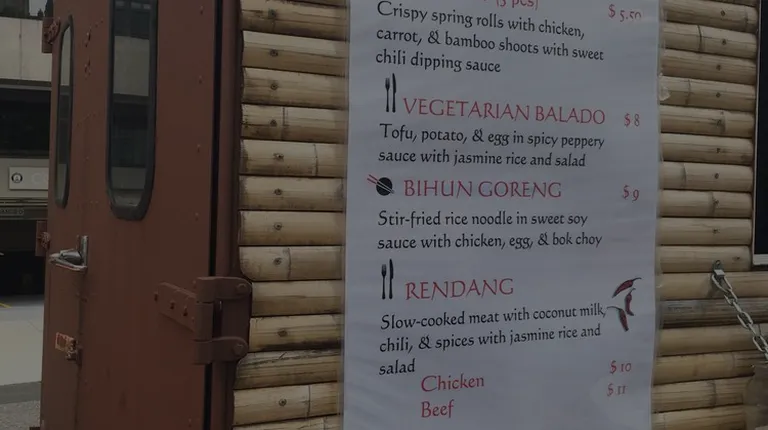 (5 pcs) $5.50
Crispy spring rolls with chicken,
carrot, & bamboo shoots with sweet
chili dipping sauce
VEGETARIAN BALADO $8
Tofu, potato, & egg in spicy peppery
sauce with jasmine rice and salad
BIHUN GORENG $9
Stir-fried rice noodle in sweet soy
sauce with chicken, egg, & bok choy
RENDANG
Slow-cooked meat with coconut milk,
chili, & spices with jasmine rice and
salad
Chicken $10
Beef $11